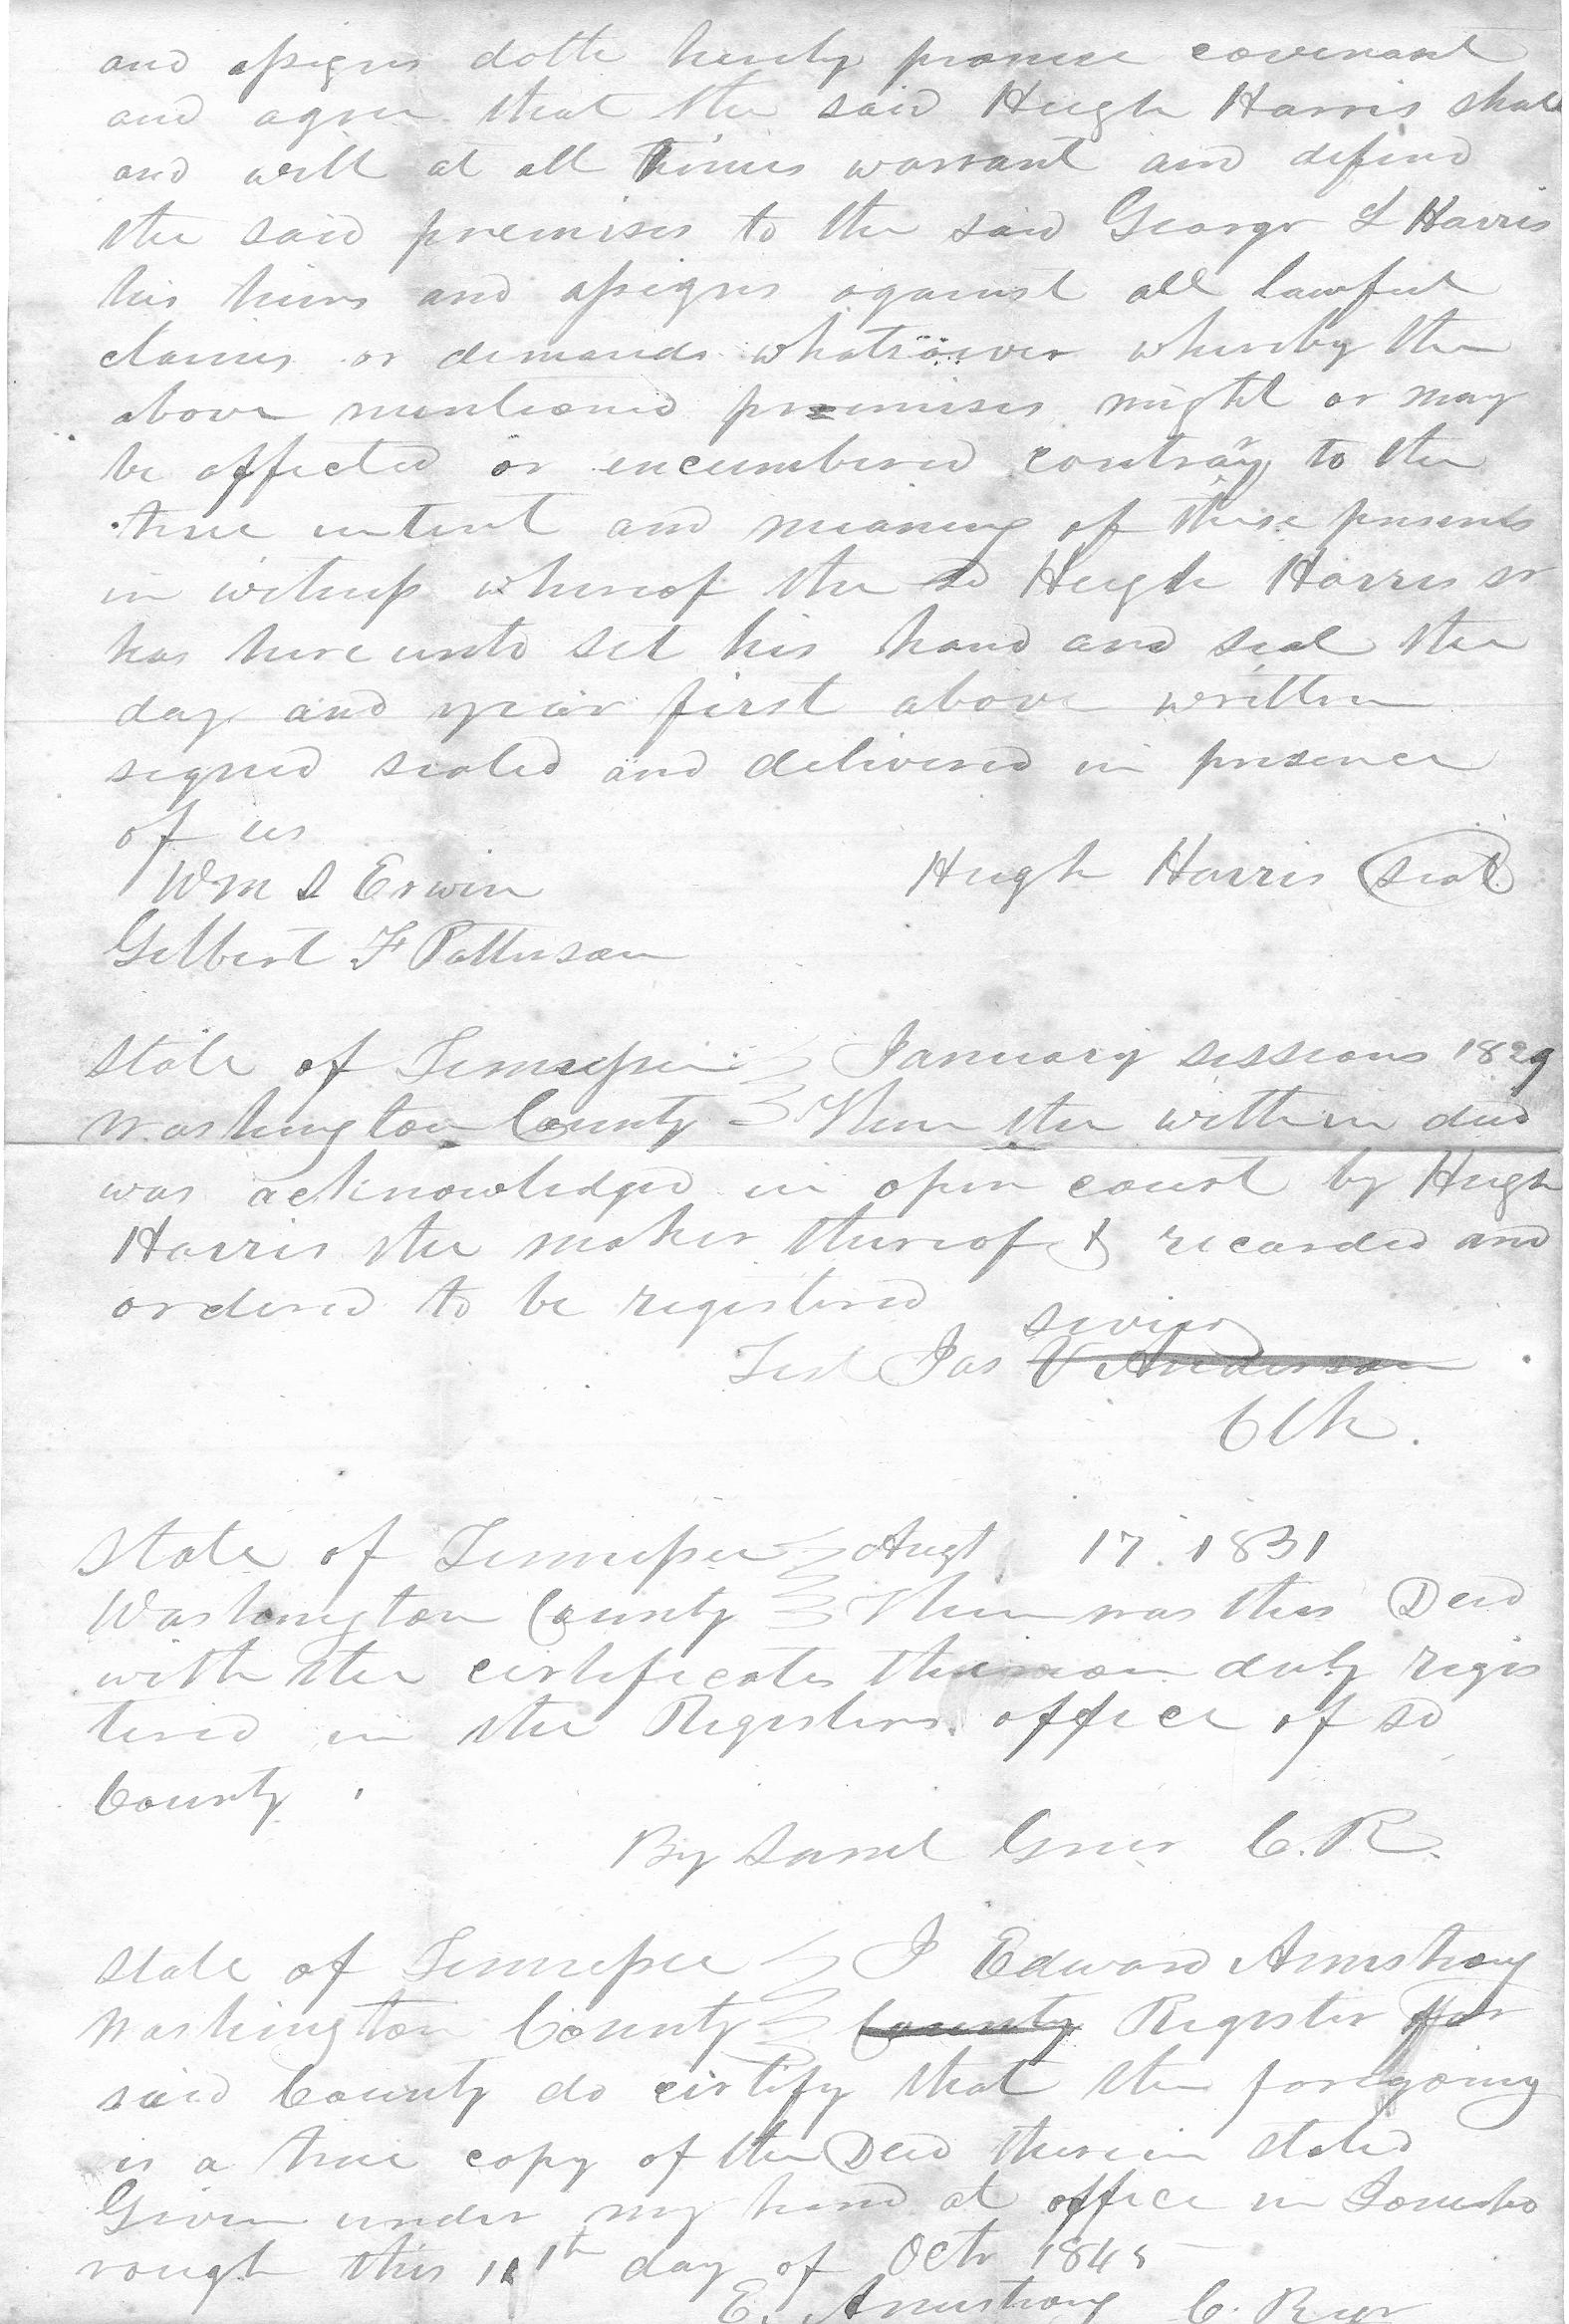 and assigns doth hereby promise covenant
and agree that the said Hugh Harris shall
and will at all times warrant and defend
the said premises to the said George L Harris
his heirs and assigns against all lawful
claims or demands whatsoever whereby the
above mentioned premises might or may
be affected or encumbered contrary to the
true intent and meaning of these presents
in witness whereof the sd Hugh Harris sr
has here unto set his hand and seal the
day and year first above written
signed sealed and delivered in presence
of us
Wm S Erwin Hugh Harris seal
Gilbert F Patterson
State of Tennessee January sessions 1829
Washington County Then the within deed
was acknowledged in open court by Hugh
Harris the maker thereof & recorded and
ordered to be registered
Sevier
Test Jas V Anderson
Clk.
State of Tennessee Augt 17. 1831
Washington County Then was this Deed
with the certificates thereon duly regis
tered in the Registers office of sd
County.
By Saml Greer C.R.
State of Tennessee I Edward Armstrong
Washington County County Register for
said County do certify that the foregoing
is a true copy of the Deed therein stated
Given under my hand at office in Jonesbo
rough this 11th day of Octr 1845
E. Armstrong C. Regr